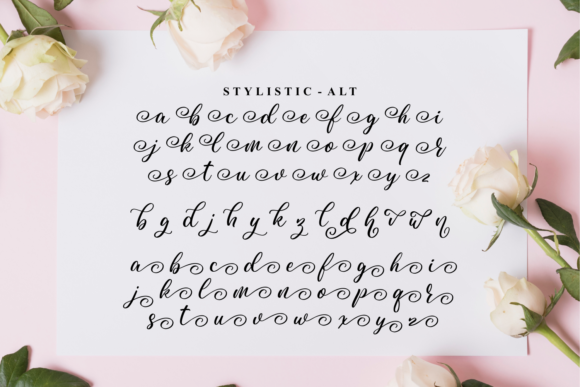 STYLISTIC - ALT
a b c d e f g h i
j k l m n o p q r
s t u v w x y z
b g d j h y k z l d h v w n
a b c d e f g h i
j k l m n o p q r
s t u v w x y z